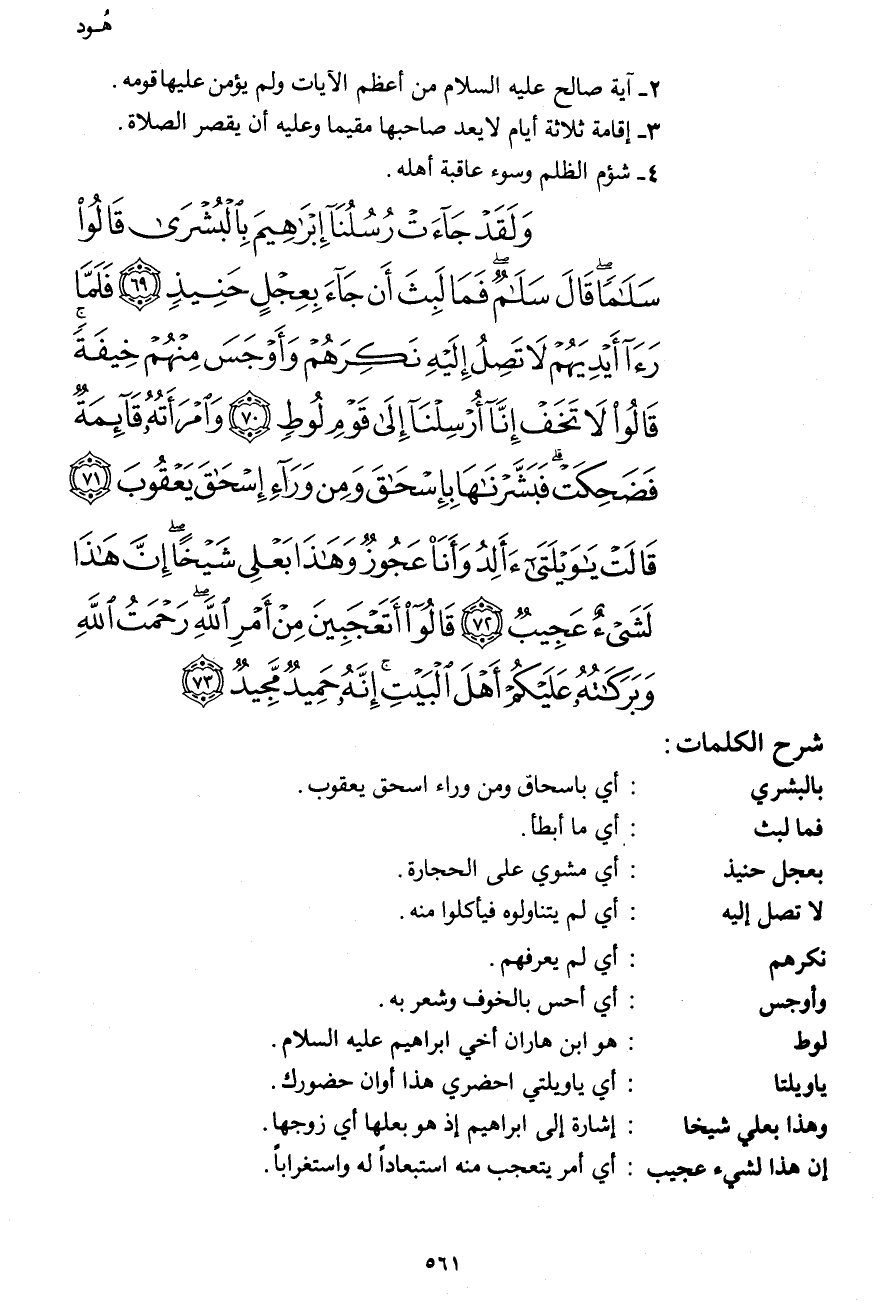 هُـود
٢ـ آية صالح عليه السلام من أعظم الآيات ولم يؤمن عليها قومه.
٣ـ إقامة ثلاثة أيام لايعد صاحبها مقيما وعليه أن يقصر الصلاة.
٤ـ شؤم الظلم وسوء عاقبة أهله.
وَلَقَدْ جَآءَتْ رُسُلُنَآ إِبْرَٰهِيمَ بِٱلْبُشْرَىٰ قَالُوا۟
سَلَٰمًا ۖ قَالَ سَلَٰمٌ ۖ فَمَا لَبِثَ أَن جَآءَ بِعِجْلٍ حَنِيذٍ ﴿٦٩﴾ فَلَمَّا
رَءَآ أَيْدِيَهُمْ لَا تَصِلُ إِلَيْهِ نَكِرَهُمْ وَأَوْجَسَ مِنْهُمْ خِيفَةً ۚ
قَالُوا۟ لَا تَخَفْ إِنَّآ أُرْسِلْنَآ إِلَىٰ قَوْمِ لُوطٍ ﴿٧٠﴾ وَٱمْرَأَتُهُۥ قَآئِمَةٌ
فَضَحِكَتْ ۖ فَبَشَّرْنَٰهَا بِإِسْحَٰقَ وَمِن وَرَآءِ إِسْحَٰقَ يَعْقُوبَ ﴿٧١﴾
قَالَتْ يَٰوَيْلَتَىٰٓ ءَأَلِدُ وَأَنَا۠ عَجُوزٌ وَهَٰذَا بَعْلِى شَيْخًا ۖ إِنَّ هَٰذَا
لَشَىْءٌ عَجِيبٌ ﴿٧٢﴾ قَالُوٓا۟ أَتَعْجَبِينَ مِنْ أَمْرِ ٱللَّهِ ۖ رَحْمَتُ ٱللَّهِ
وَبَرَكَٰتُهُۥ عَلَيْكُمْ أَهْلَ ٱلْبَيْتِ ۚ إِنَّهُۥ حَمِيدٌ مَّجِيدٌ ﴿٧٣﴾
شرح الكلمات :
بالبشري : أي باسحاق ومن وراء اسحق يعقوب.
فما لبث : أي ما أبطأ.
بعجل حنيذ : أي مشوي على الحجارة.
لا تصل إليه : أي لم يتناولوه فيأكلوا منه.
نكرهم : أي لم يعرفهم.
وأوجس : أي أحس بالخوف وشعر به.
لوط : هو ابن هاران أخي ابراهيم عليه السلام.
ياويلتا : أي ياويلتي احضري هذا أوان حضورك.
وهذا بعلي شيخا : إشارة إلى ابراهيم إذ هو بعلها أي زوجها.
إن هذا لشيء عجيب : أي أمر يتعجب منه استبعاداً له واستغراباً.
٥٦١